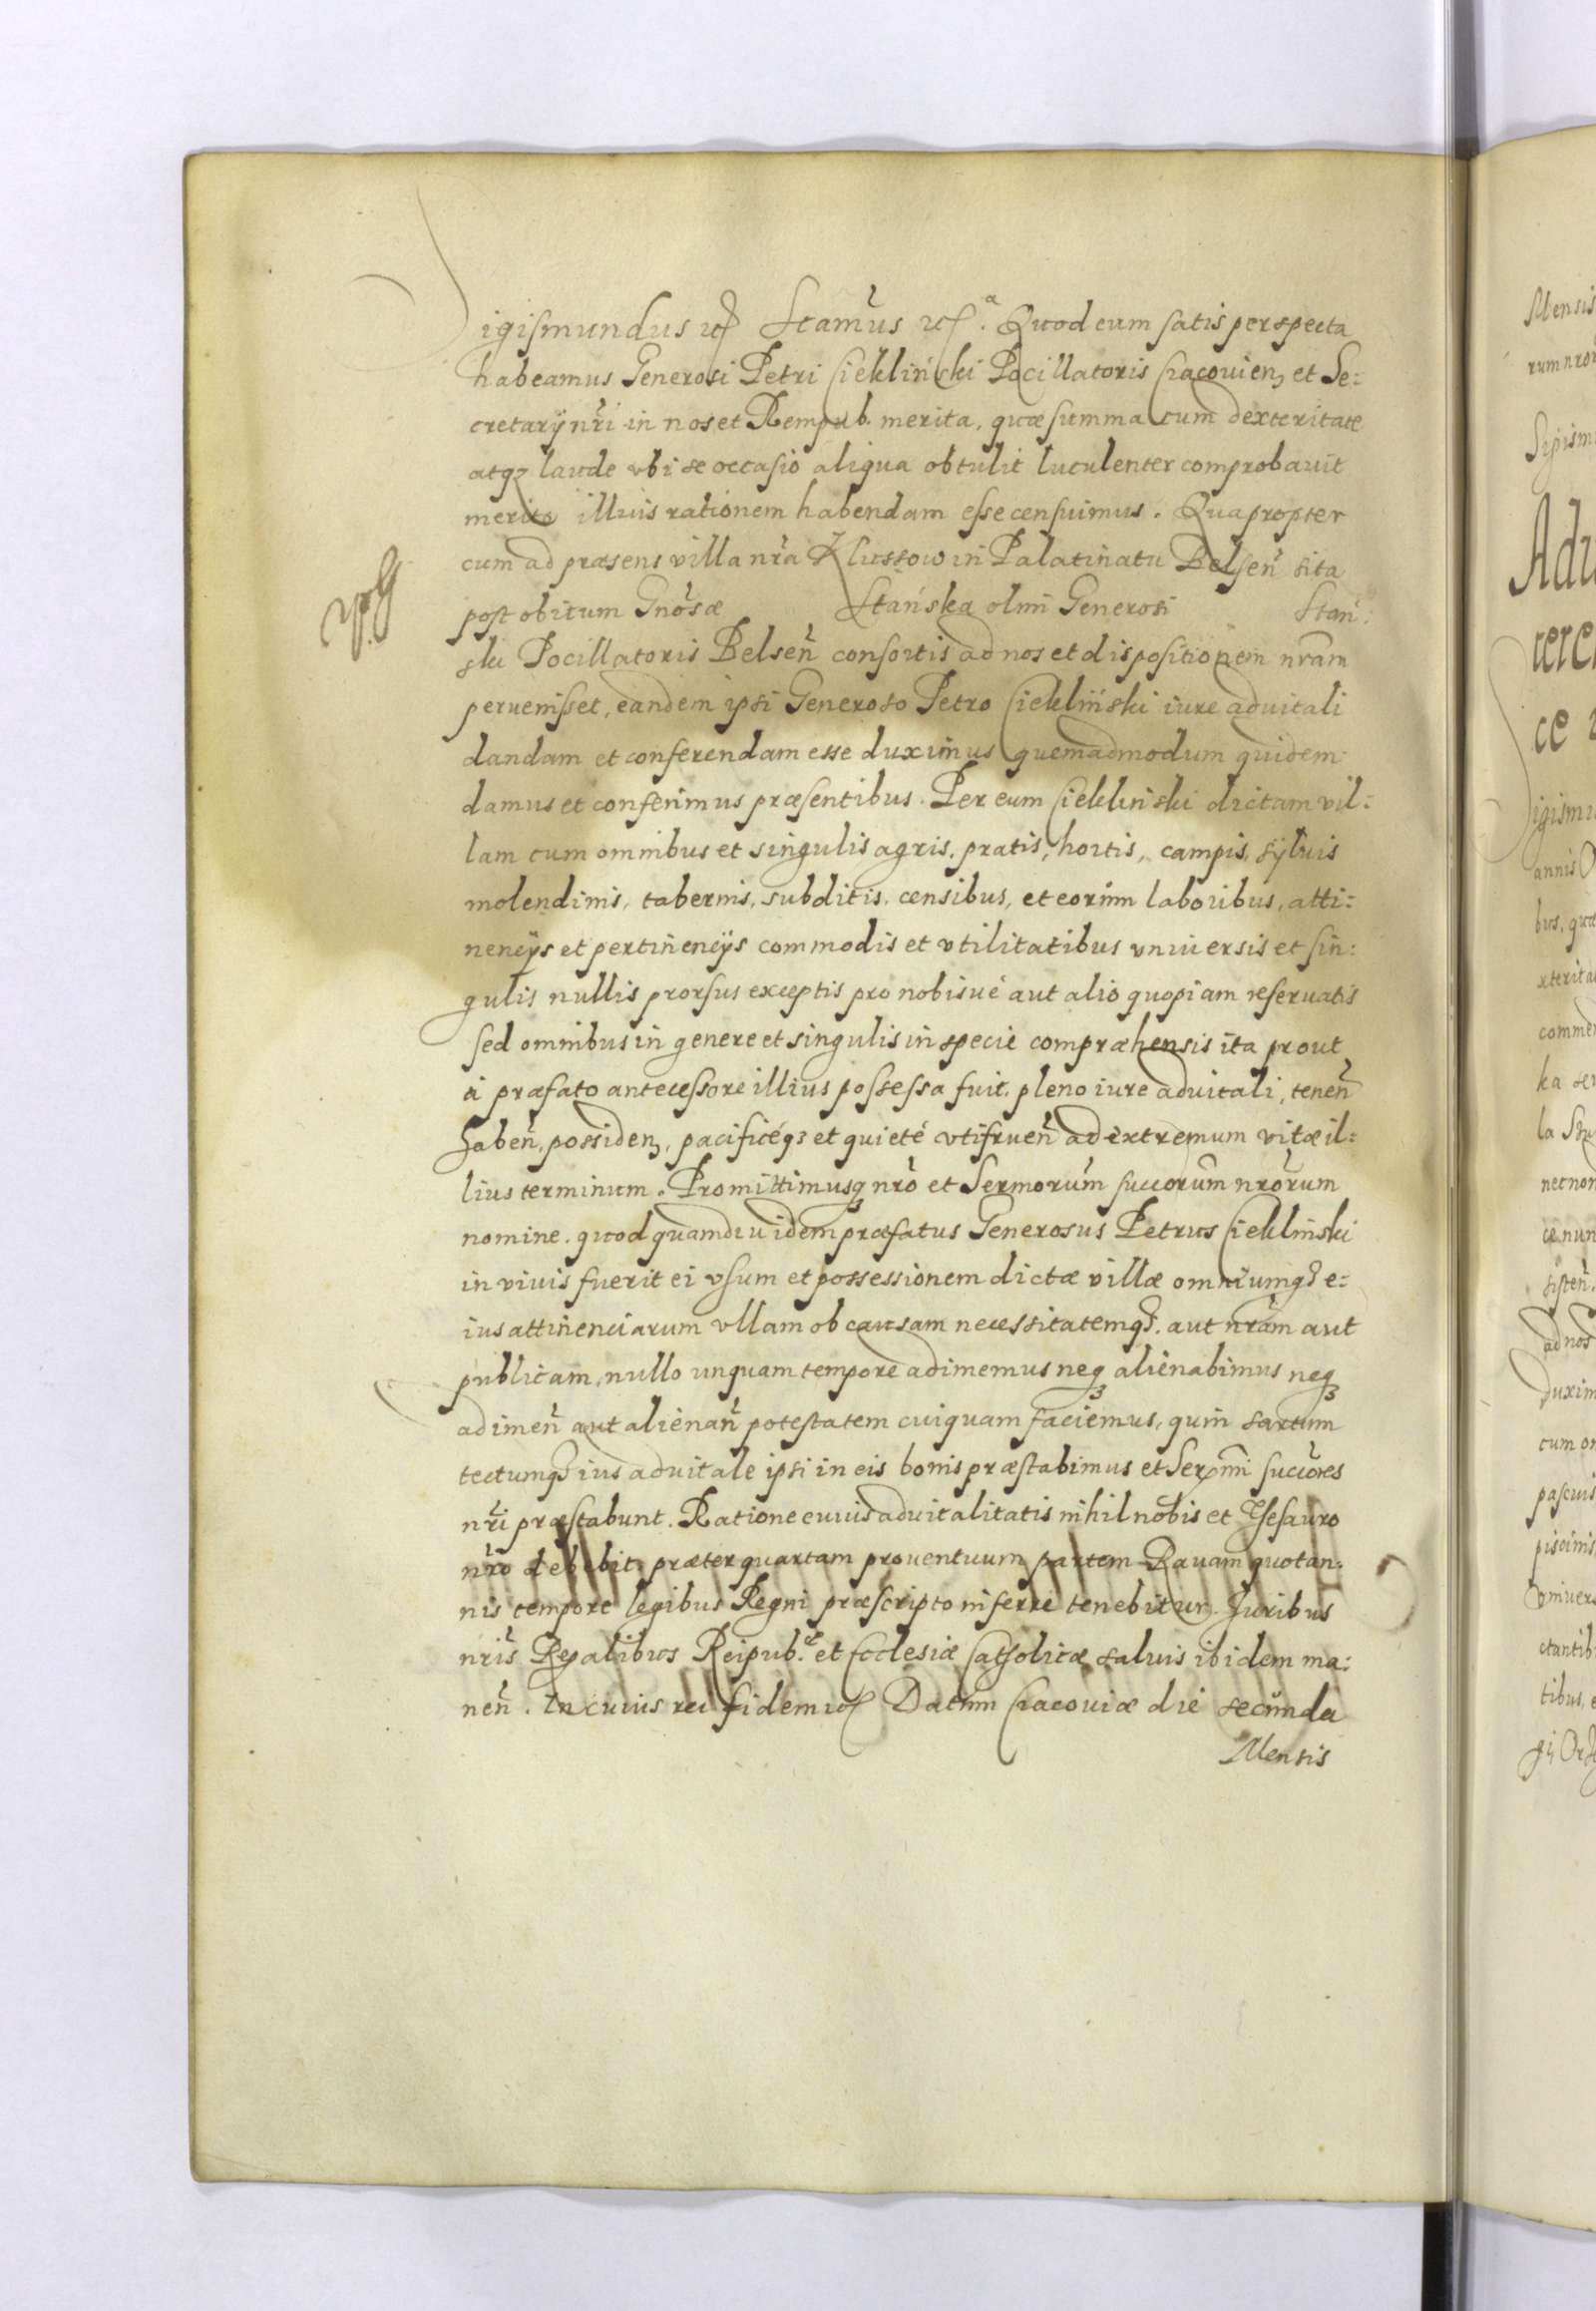 Sigismundus etc. Stamus etc.ª Quod cum satis perspecta
habeamus Generosi Petri Ciekliński Pocillatoris Cracouien, et Se:
cretarÿ nr̃i in nos et Rempub. merita, quæ summa cum dexteritate
atq3 laude vbi se occasio aliqua obtulit luculenter comprobauit
merito illius rationem habendam esse censuimus. Quapropter
cum ad præsens villa nr̃a Klussow in Palatinatu Belseñ sita
post obitum Gnõsæ Stańska olim Generosi Stań:
ski Pocillatoris Belseñ consortis ad nos et dispositionem nr̃am
peruenisset, eandem ipsi Generoso Petro Ciekliński iure aduitali
dandam et conferendam esse duximus quemadmodum quidem
damus et conferimus præsentibus. Per eum Ciekliński dictam vil:
lam cum omnibus et singulis agris, pratis, hortis, campis, syluis
molendinis, tabernis, subditis, censibus, et eorum laboribus, atti:
nencÿs et pertinencÿs commodis et vtilitatibus vniuersis et sin:
gulis nullis prorsus exceptis pro nobisue aut alio quopiam reseruatis
sed omnibus in genere et singulis in specie compræhensis ita prout
à præfato antecessore illius possessa fuit, pleno iure aduitali, teneñ
habeñ, possiden, pacificéq3 et quieté vtifrueñ ad extremum vitæ il:
lius terminum. Promittimusq3 nr̃o et Sermorum̃ succorum̃ nrõrum
nomine, quod quamdiu idem præfatus Generosus Petrus Ciekliński
in viuis fuerit ei vsum et possessionem dictæ villæ omniumq3 e:
ius attinenciarum vllam ob causam necessitatemq3, aut nr̃am aut
publicam, nullo unquam tempore adimemus neq3 alienabimus neq3
adimeñ aut alienañ potestatem cuiquam faciemus, quin sartum
tectumq3 ius aduitale ipsi in eis bonis præstabimus et Serm̃i succõres
nr̃i præstabunt. Ratione cuius aduitalitatis nihil nobis et Thesauro
nr̃o debebit, præter quartam prouentuum partem Rauam quotan:
nis tempore legibus Regni præscripto inferre tenebitur. Juribus
nr̃is Regalibus Reipub.æ et Ecclesiæ Catholicæ saluis ibidem ma:
neñ. In cuius rei fidem etc. Datum Cracouiæ die secunda
Mensis